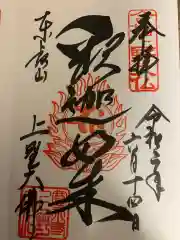 奉拝
令和二年
六月十四日
釈迦如来
東叡山
上野大佛